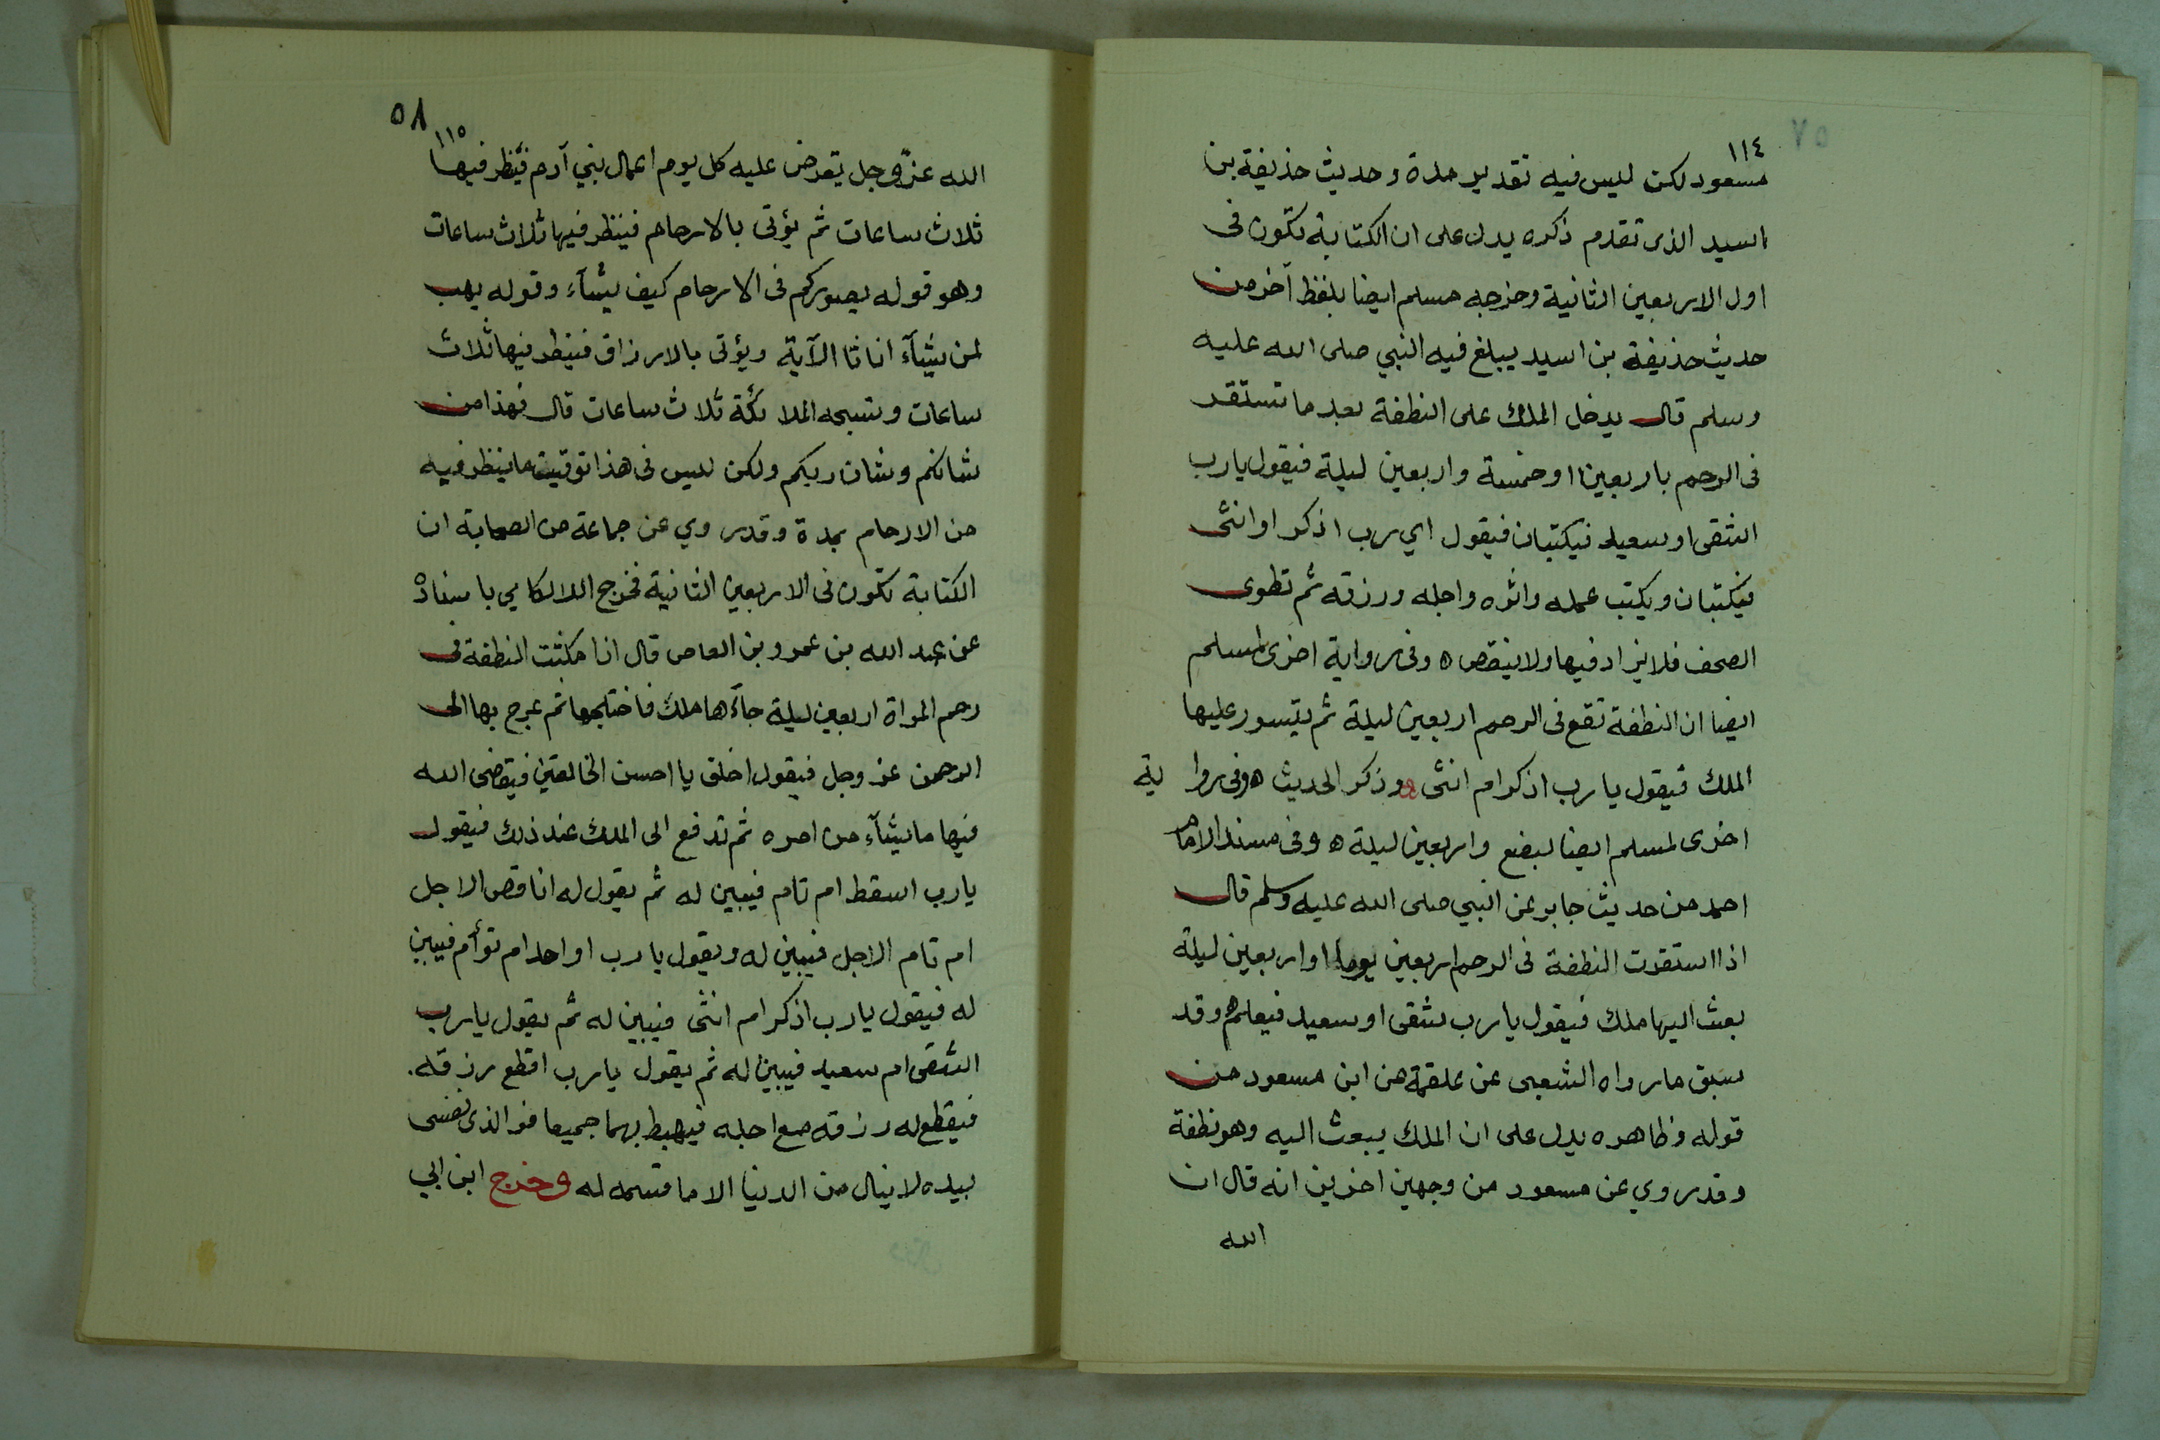 ٥٧
١١٤
مسعود لكن ليس فيه تقدير مدة وحديث حذيفة بن
اسيد الذى تقدم ذكره يدل على ان الكتابة تكون فى
اول الاربعين الثانية وخرجه مسلم ايضا بلفظ آخر من
حديث حذيفة بن اسيد يبلغ فيه النبي صلى الله عليه
وسلم قال يدخل الملك على النطفة بعد ما تستقر
فى الرحم باربعين او خمسة واربعين ليلة فيقول يارب
اشقى او سعيد فيكتبان فيقول اي رب اذكر او انثى
فيكتبان ويكتب عمله واثره واجله ورزقه ثم تطوى
الصحف فلا يزاد فيها ولا ينقص ه وفى رواية اخرى لمسلم
ايضا ان النطفة تقع فى الرحم اربعين ليلة ثم يتسور عليها
الملك فيقول يا رب اذكر ام انثى وذكر الحديث ه وفى روا ية
اخرى لمسلم ايضا لبضع واربعين ليلة ه وفى مسند الامام
احمد من حديث جابر عن النبي صلى الله عليه وسلم قال
اذا استقرت النطفة فى الرحم اربعين يوما او اربعين ليلة
بعث اليها ملك فيقول يا رب شقى او سعيد فيعلم ه وقد
سبق ما رواه الشعبى عن علقمة عن ابن مسعود من
قوله وظاهره يدل على ان الملك يبعث اليه وهو نطفة
وقد روي عن مسعود من وجهين اخرين انه قال ان
الله
٥٨
١١٥
الله عزّ وجل يعرض عليه كل يوم اعمال بني آدم فينظر فيها
ثلاث ساعات ثم يؤتى بالارحام فينظر فيها ثلاث ساعات
وهو قوله يصوركم فى الارحام كيف يشآء وقوله يهب
لمن يشآء اناثا الآية ويؤتى بالارزاق فينظر فيها ثلاث
ساعات وتسبحه الملائكة ثلاث ساعات قال فهذا من
شانكم وشان ربكم ولكن ليس فى هذا توقيت ما ينظر فيه
من الارحام بمدة وقد روي عن جماعة من الصحابة ان
الكتابة تكون فى الاربعين الثانية فخرج اللالكامي باسناده
عن عبد الله بن عمرو بن العاص قال اذا مكثت النطفة فى
رحم المراة اربعين ليلة جآءها ملك فاختلجها ثم عرج بها الى
الرحمن عز وجل فيقول اخلق يا احسن الخالقين فيقضى الله
فيها ما يشآء من امره ثم تدفع الى الملك عند ذلك فيقول
يارب اسقط ام تام فيبين له ثم يقول له اناقص الاجل
ام تام الاجل فيبين له ويقول يا رب اواحد ام توأم فيبين
له فيقول يا رب اذكر ام انثى فيبين له ثم يقول يا رب
اشقى ام سعيد فيبين له ثم يقول يا رب اقطع رزقه .
فيقطع له رزقه مع اجله فيهبط بهما جميعا فوالذى نفسى
بيده لا ينال من الدنيا الا ما قسمه له وخرج ابن ابي